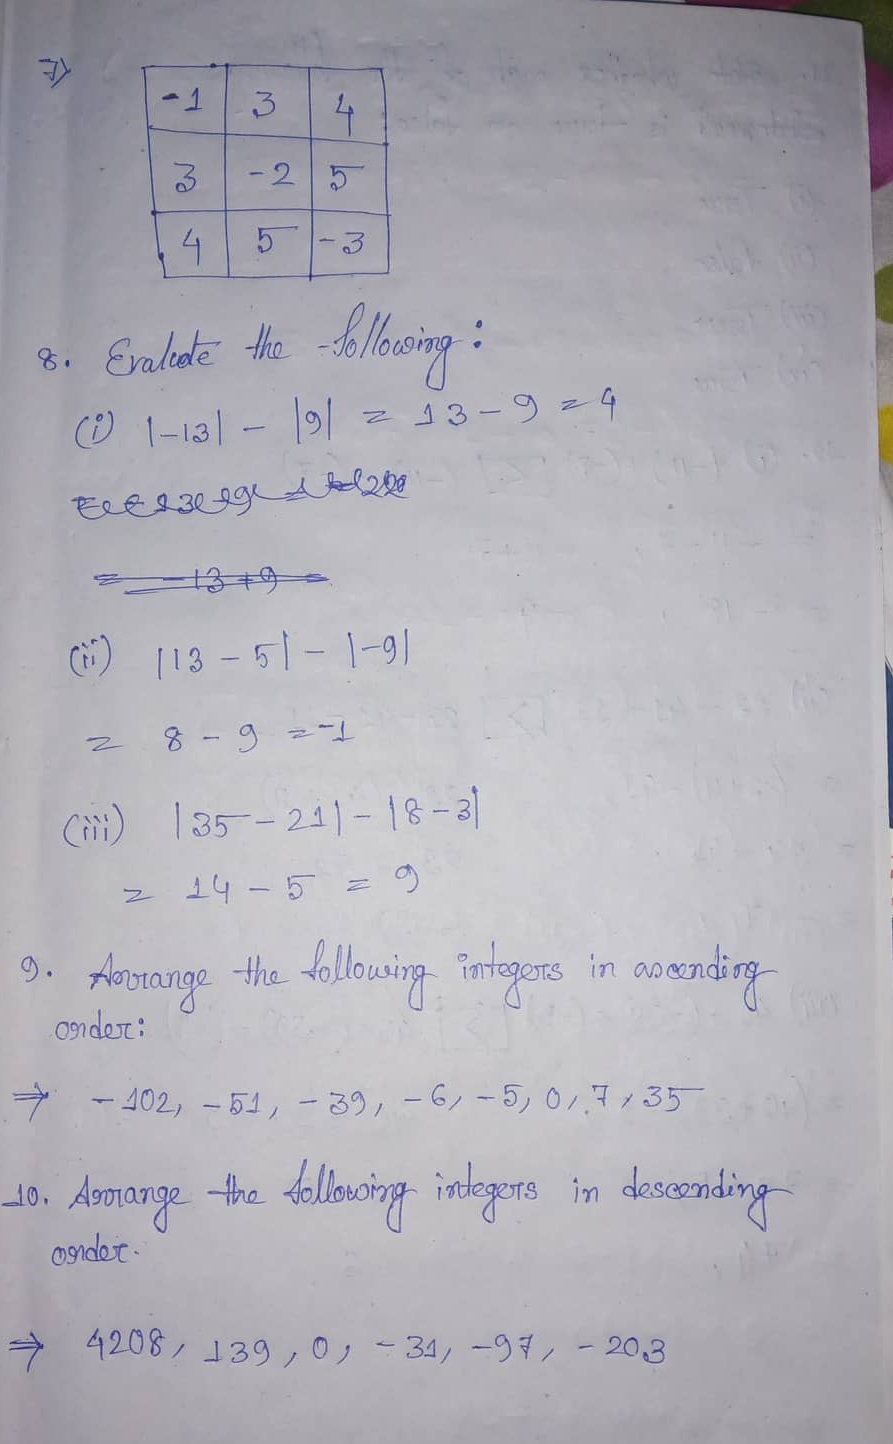 7)
-1 3 4
3 -2 5
4 5 -3
8. Evaluate the following:
(i) |-13| - |9| = 13 - 9 = 4
= -13 + 9
(ii) |13 - 5| - |-9|
= 8 - 9 = -1
(iii) |35 - 21| - |8 - 3|
= 14 - 5 = 9
9. Arrange the following integers in ascending
order:
⇒ -102, -51, -39, -6, -5, 0, 7, 35
10. Arrange the following integers in descending
order.
⇒ 4208, 139, 0, -31, -97, -203